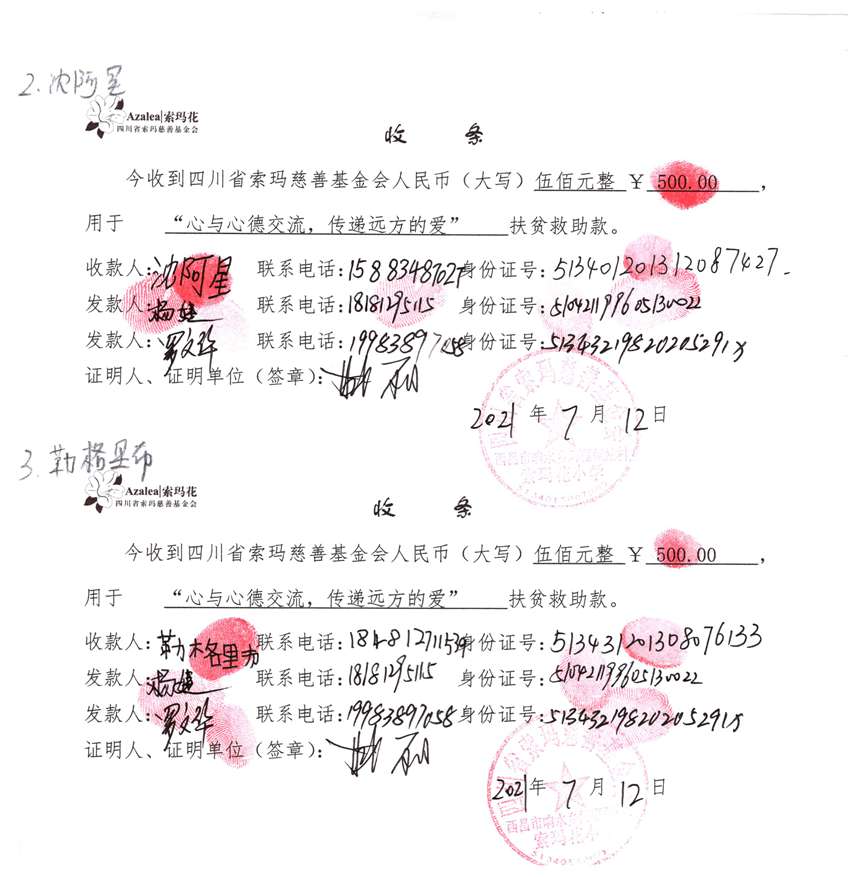 2.沈阿星
Azalea|索玛花
四川省索玛慈善基金会
收 条
今收到四川省索玛慈善基金会人民币（大写）伍佰元整 ¥ 500.00，
用于 “心与心德交流，传递远方的爱” 扶贫救助款。
收款人：沈阿星 联系电话：15883487027 身份证号：513401201312087427
发款人：杨婕 联系电话：18181295115 身份证号：510421199605130022
发款人：罗文华 联系电话：19983897058 身份证号：51343219820205291X
证明人、证明单位（签章）：
2021 年 7 月 12 日
索玛花小学
3.勒格里布
Azalea|索玛花
四川省索玛慈善基金会
收 条
今收到四川省索玛慈善基金会人民币（大写）伍佰元整 ¥ 500.00，
用于 “心与心德交流，传递远方的爱” 扶贫救助款。
收款人：勒格里布 联系电话： 身份证号：513431201308076133
发款人：杨婕 联系电话：18181295115 身份证号：510421199605130022
发款人：罗文华 联系电话：19983897058 身份证号：51343219820205291X
证明人、证明单位（签章）：
2021 年 7 月 12 日
索玛花小学